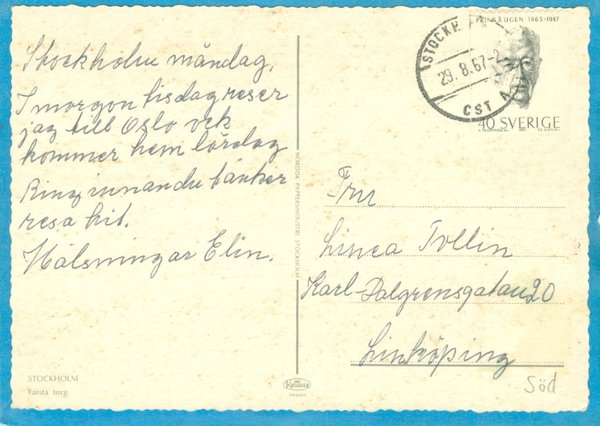 Stockholm måndag.
I morgon tisdag reser
jag till Oslo och
kommer hem lördag
Ring innan du tänker
resa hit.
Hälsningar Elin.
STOCKHOLM
Farsta torg
NORDISK PAPPERSINDUSTRI STOCKHOLM
KRÜGER
PRINS EUGEN 1865-1947
STOCKH
29.8.67
CST A
40 SVERIGE
Fru
Linea Tollin
Karl-Dalgrensgatan 20
Linköping
Söd